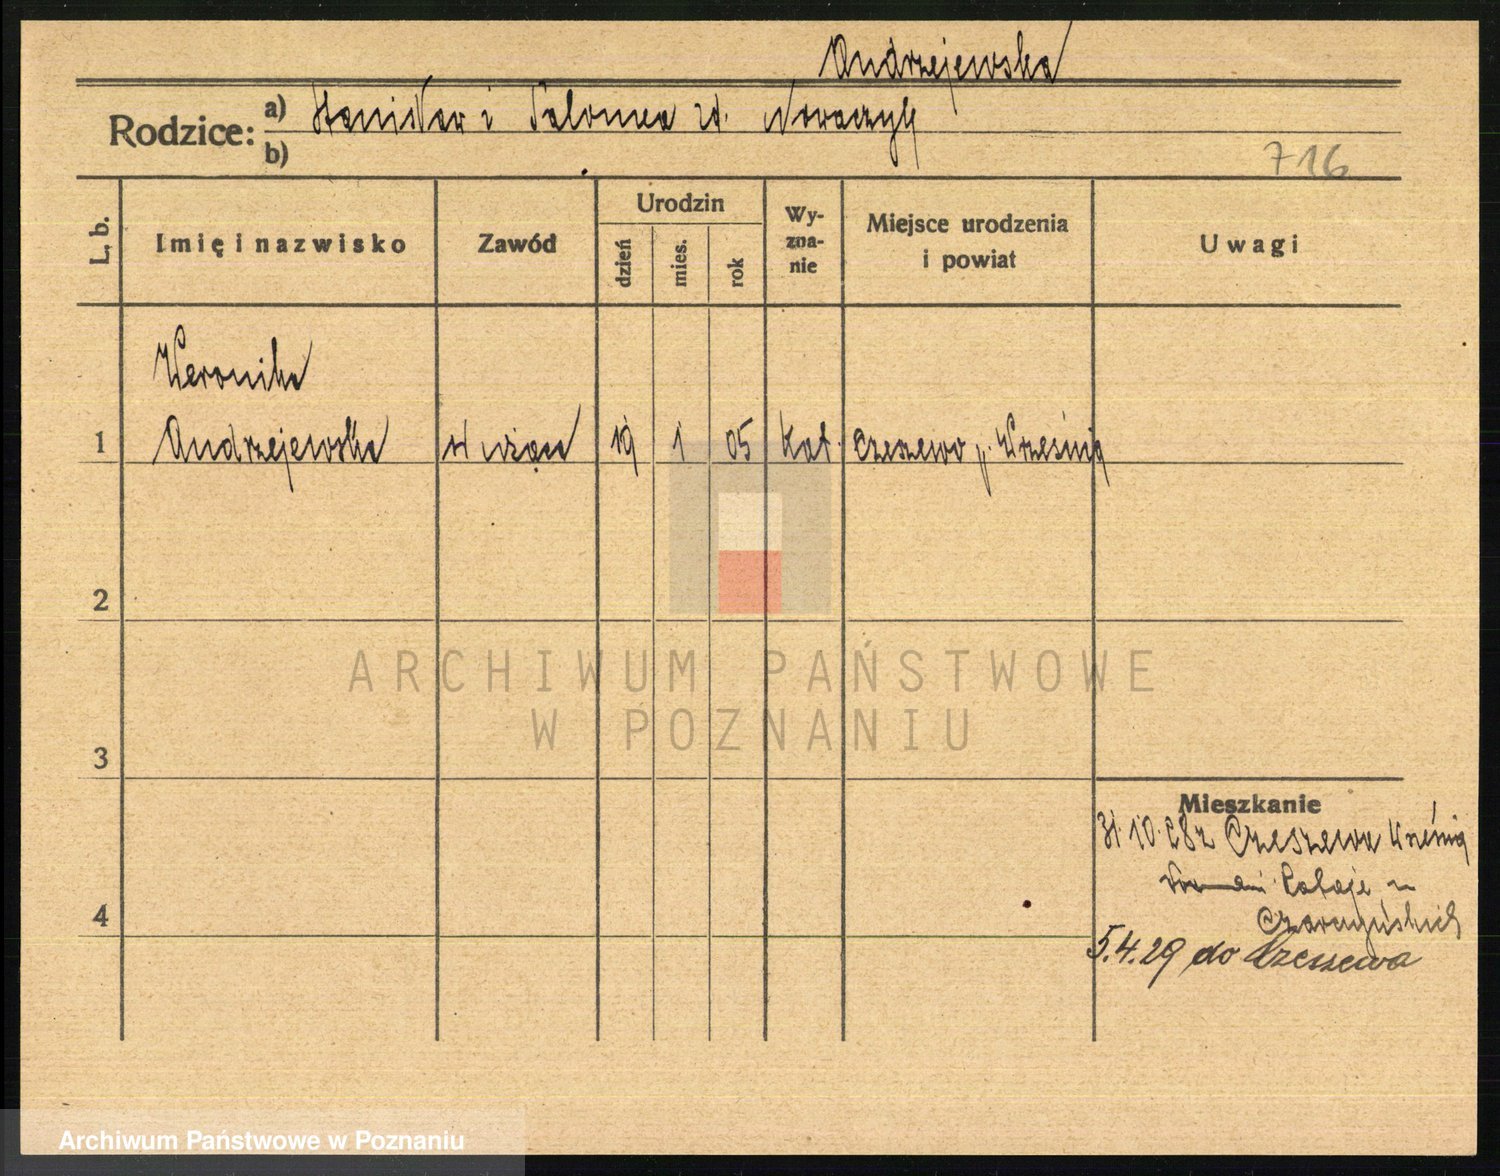 Andrzejewska
Rodzice: a) Stanisław i Salomea zd. Nowaczyk
b)
716
L. b.
Imię i nazwisko
Zawód
Urodzin
dzień
mies.
rok
Wy-
zna-
nie
Miejsce urodzenia
i powiat
Uwagi
Weronika
1 Andrzejewska służąca 19 1 05 kat. Czeszewo p. Września
2
3
4
Mieszkanie
31.10.28 z Czeszewa Wrześnią
Rataje
5.4.29 do Czeszewa
ARCHIWUM PAŃSTWOWE
W POZNANIU
Archiwum Państwowe w Poznaniu